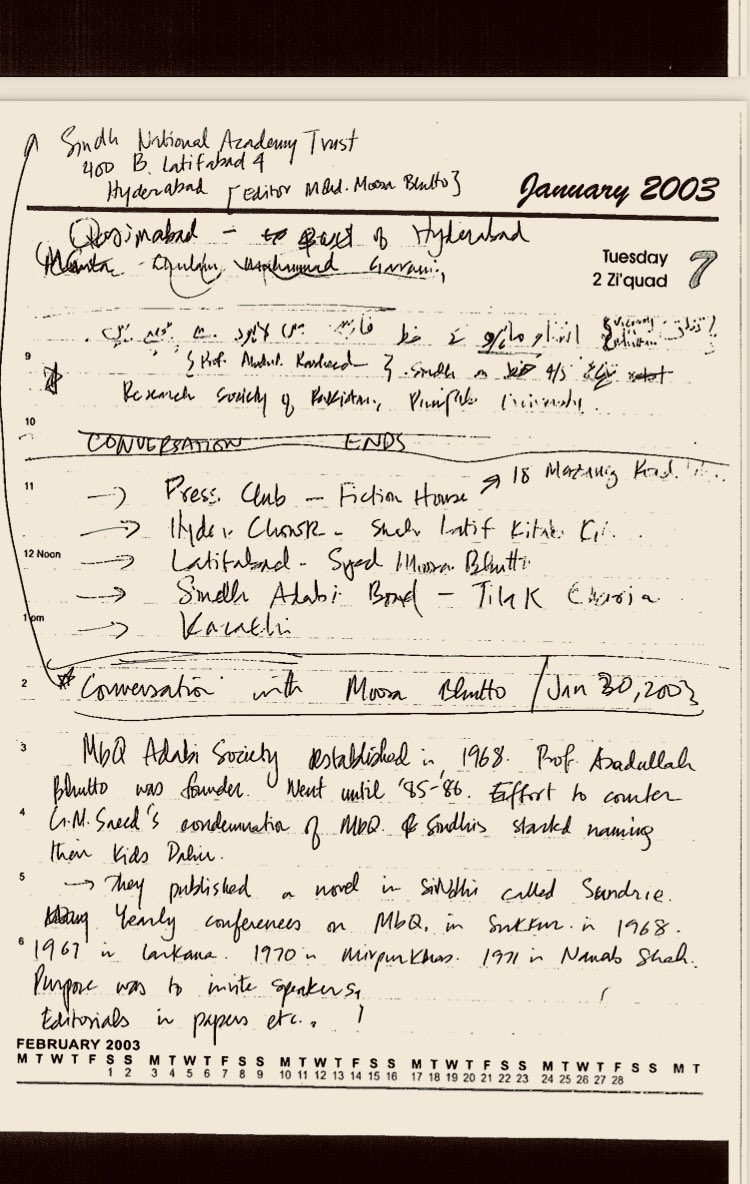 Sindh National Academy Trust
400 B. Latifabad 4
Hyderabad [Editor Md. Moosa Bhutto]
January 2003
Qasimabad - part of Hyderabad
Ghulam Mohammad
Tuesday 7
2 Zi'quad
9
{ Prof. Abdul Rasheed } Sindh
Research Society of Pakistan, Punjab University.
10
CONVERSATION ENDS
11
→ Press Club - Fiction House ↗ 18 Mazang
→ Hyder Chowk - Shah Latif Kitab
12 Noon
→ Latifabad - Syed Moosa Bhutto
→ Sindh Adabi Bord - Tilak
1 pm
→ Karachi
2
* Conversation with Moosa Bhutto / Jan 30, 2003
3
MbQ Adabi Society established in 1968. Prof. Asadullah
Bhutto was founder. Went until '85-'86. Effort to counter
4
G.M. Saeed's condemnation of MbQ. Sindhis started naming
their kids Dahir.
5
→ They published a novel in Sindhi called Sundrie.
Yearly conferences on MbQ, in Sukkur in 1968.
6
1967 in Larkana. 1970 in MirpurKhas. 1971 in Nawab Shah.
Purpose was to invite speakers,
Editorials in papers etc.
FEBRUARY 2003
M T W T F S S M T W T F S S M T W T F S S M T W T F S S M T W T F S S M T
1 2 3 4 5 6 7 8 9 10 11 12 13 14 15 16 17 18 19 20 21 22 23 24 25 26 27 28